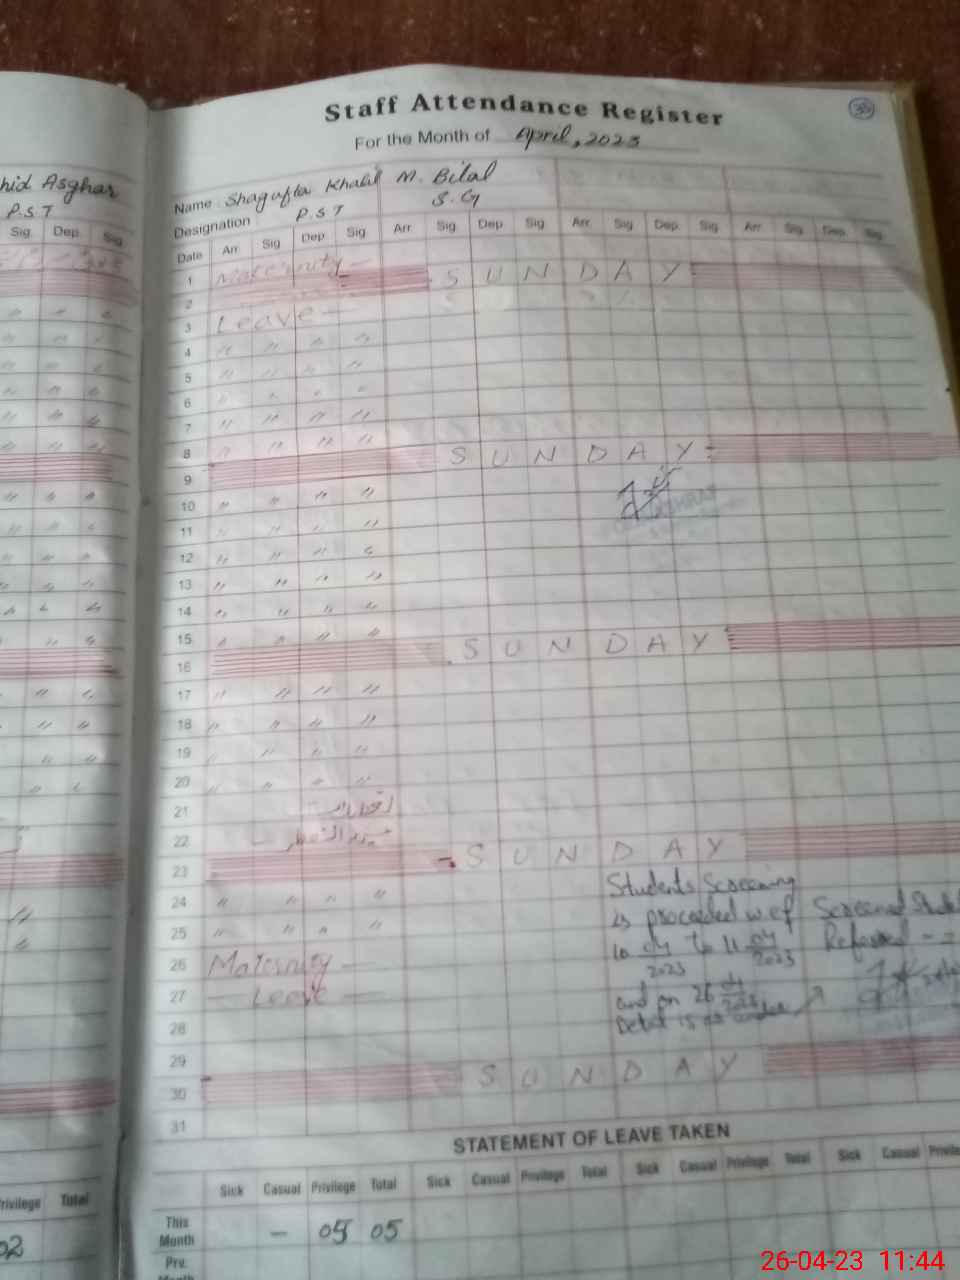 Staff Attendance Register
35
For the Month of April, 2023
hid Asghar
P.S.T
Sig. Dep. Sig.
Name Shagufta Khalil M. Bilal
Designation P.S.T S.G
Date Arr Sig Dep Sig Arr. Sig Dep Sig Arr. Sig Dep. Sig Arr. Sig. Dep. Sig.
1 Maternity — S U N D A Y
2
3 Leave —
4 " " " "
5 " " " "
6 " " " "
7 " " " "
8 " " " "
9 S U N D A Y
10 " " " "
11 " " " "
12 " " " "
13 " " " "
14 " " " "
15 " " " "
16 S U N D A Y
17 " " " "
18 " " " "
19 " " " "
20 " " " "
21
22
23 S U N D A Y
24 " " " "
25 " " " "
26 Maternity —
27 — Leave —
28
29
30 S U N D A Y
31
Students Screening
is proceeded w.e.f
10 04/2023 To 11 04/2023
and on 26 04/2023
Detail is as under
Screened
Referred - =
STATEMENT OF LEAVE TAKEN
Privilege Total
Sick Casual Privilege Total Sick Casual Privilege Total Sick Casual Privilege Total Sick Casual Privile
This Month — 05 05
02
Pre. Month
26-04-23 11:44